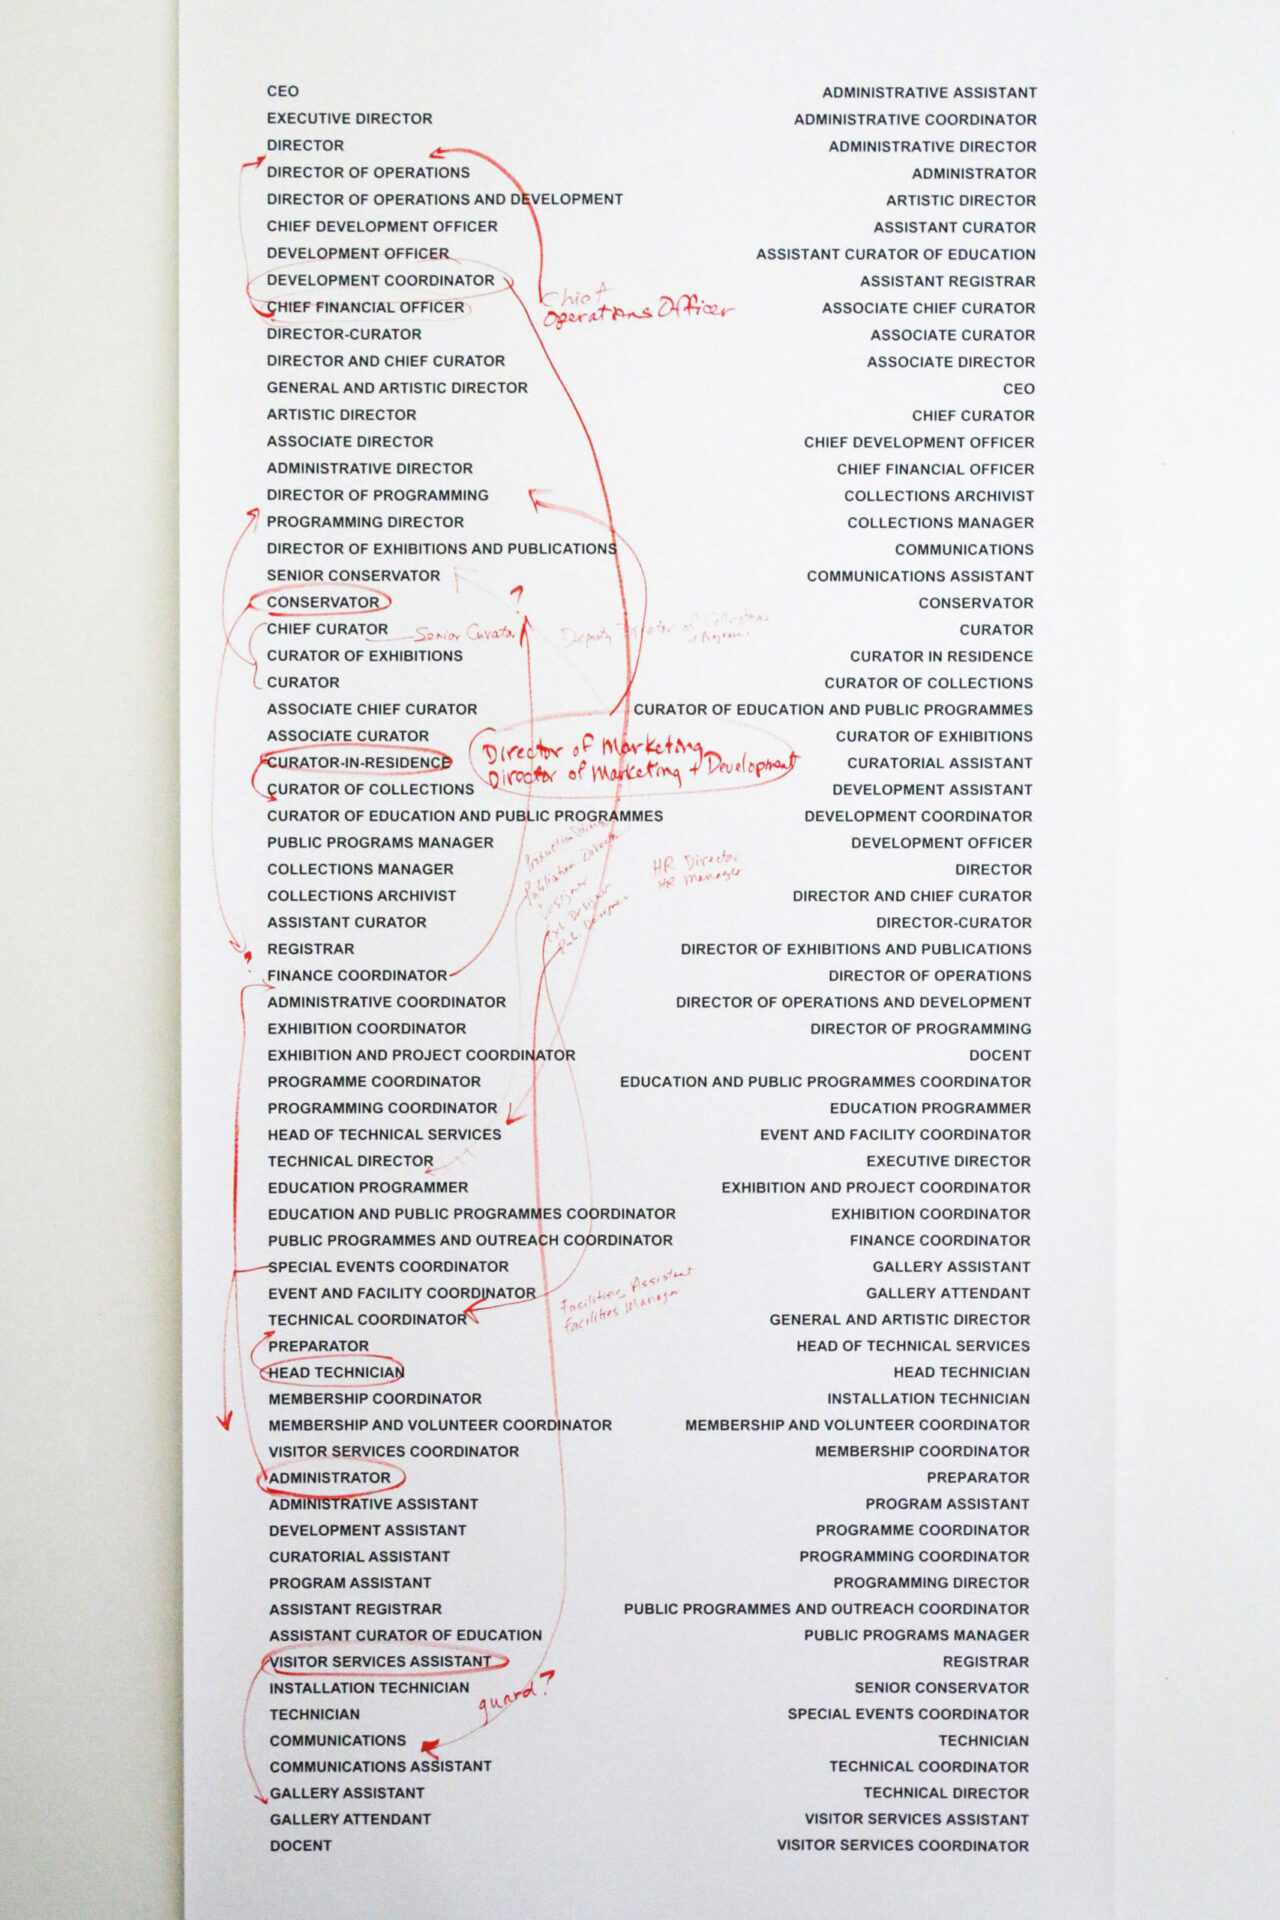 CEO
EXECUTIVE DIRECTOR
DIRECTOR
DIRECTOR OF OPERATIONS
DIRECTOR OF OPERATIONS AND DEVELOPMENT
CHIEF DEVELOPMENT OFFICER
DEVELOPMENT OFFICER
DEVELOPMENT COORDINATOR
CHIEF FINANCIAL OFFICER
DIRECTOR-CURATOR
DIRECTOR AND CHIEF CURATOR
GENERAL AND ARTISTIC DIRECTOR
ARTISTIC DIRECTOR
ASSOCIATE DIRECTOR
ADMINISTRATIVE DIRECTOR
DIRECTOR OF PROGRAMMING
PROGRAMMING DIRECTOR
DIRECTOR OF EXHIBITIONS AND PUBLICATIONS
SENIOR CONSERVATOR
CONSERVATOR
CHIEF CURATOR
CURATOR OF EXHIBITIONS
CURATOR
ASSOCIATE CHIEF CURATOR
ASSOCIATE CURATOR
CURATOR-IN-RESIDENCE
CURATOR OF COLLECTIONS
CURATOR OF EDUCATION AND PUBLIC PROGRAMMES
PUBLIC PROGRAMS MANAGER
COLLECTIONS MANAGER
COLLECTIONS ARCHIVIST
ASSISTANT CURATOR
REGISTRAR
FINANCE COORDINATOR
ADMINISTRATIVE COORDINATOR
EXHIBITION COORDINATOR
EXHIBITION AND PROJECT COORDINATOR
PROGRAMME COORDINATOR
PROGRAMMING COORDINATOR
HEAD OF TECHNICAL SERVICES
TECHNICAL DIRECTOR
EDUCATION PROGRAMMER
EDUCATION AND PUBLIC PROGRAMMES COORDINATOR
PUBLIC PROGRAMMES AND OUTREACH COORDINATOR
SPECIAL EVENTS COORDINATOR
EVENT AND FACILITY COORDINATOR
TECHNICAL COORDINATOR
PREPARATOR
HEAD TECHNICIAN
MEMBERSHIP COORDINATOR
MEMBERSHIP AND VOLUNTEER COORDINATOR
VISITOR SERVICES COORDINATOR
ADMINISTRATOR
ADMINISTRATIVE ASSISTANT
DEVELOPMENT ASSISTANT
CURATORIAL ASSISTANT
PROGRAM ASSISTANT
ASSISTANT REGISTRAR
ASSISTANT CURATOR OF EDUCATION
VISITOR SERVICES ASSISTANT
INSTALLATION TECHNICIAN
TECHNICIAN
COMMUNICATIONS
COMMUNICATIONS ASSISTANT
GALLERY ASSISTANT
GALLERY ATTENDANT
DOCENT
Operations Officer
?
Senior Curator
Deputy Director of Collections
Director of Marketing
Director of Marketing + Development
Production Director
Publication Director
Designer
HR Director
HR Manager
?
Facilities Assistant
Facilities Manager
guard?
ADMINISTRATIVE ASSISTANT
ADMINISTRATIVE COORDINATOR
ADMINISTRATIVE DIRECTOR
ADMINISTRATOR
ARTISTIC DIRECTOR
ASSISTANT CURATOR
ASSISTANT CURATOR OF EDUCATION
ASSISTANT REGISTRAR
ASSOCIATE CHIEF CURATOR
ASSOCIATE CURATOR
ASSOCIATE DIRECTOR
CEO
CHIEF CURATOR
CHIEF DEVELOPMENT OFFICER
CHIEF FINANCIAL OFFICER
COLLECTIONS ARCHIVIST
COLLECTIONS MANAGER
COMMUNICATIONS
COMMUNICATIONS ASSISTANT
CONSERVATOR
CURATOR
CURATOR IN RESIDENCE
CURATOR OF COLLECTIONS
CURATOR OF EDUCATION AND PUBLIC PROGRAMMES
CURATOR OF EXHIBITIONS
CURATORIAL ASSISTANT
DEVELOPMENT ASSISTANT
DEVELOPMENT COORDINATOR
DEVELOPMENT OFFICER
DIRECTOR
DIRECTOR AND CHIEF CURATOR
DIRECTOR-CURATOR
DIRECTOR OF EXHIBITIONS AND PUBLICATIONS
DIRECTOR OF OPERATIONS
DIRECTOR OF OPERATIONS AND DEVELOPMENT
DIRECTOR OF PROGRAMMING
DOCENT
EDUCATION AND PUBLIC PROGRAMMES COORDINATOR
EDUCATION PROGRAMMER
EVENT AND FACILITY COORDINATOR
EXECUTIVE DIRECTOR
EXHIBITION AND PROJECT COORDINATOR
EXHIBITION COORDINATOR
FINANCE COORDINATOR
GALLERY ASSISTANT
GALLERY ATTENDANT
GENERAL AND ARTISTIC DIRECTOR
HEAD OF TECHNICAL SERVICES
HEAD TECHNICIAN
INSTALLATION TECHNICIAN
MEMBERSHIP AND VOLUNTEER COORDINATOR
MEMBERSHIP COORDINATOR
PREPARATOR
PROGRAM ASSISTANT
PROGRAMME COORDINATOR
PROGRAMMING COORDINATOR
PROGRAMMING DIRECTOR
PUBLIC PROGRAMMES AND OUTREACH COORDINATOR
PUBLIC PROGRAMS MANAGER
REGISTRAR
SENIOR CONSERVATOR
SPECIAL EVENTS COORDINATOR
TECHNICIAN
TECHNICAL COORDINATOR
TECHNICAL DIRECTOR
VISITOR SERVICES ASSISTANT
VISITOR SERVICES COORDINATOR